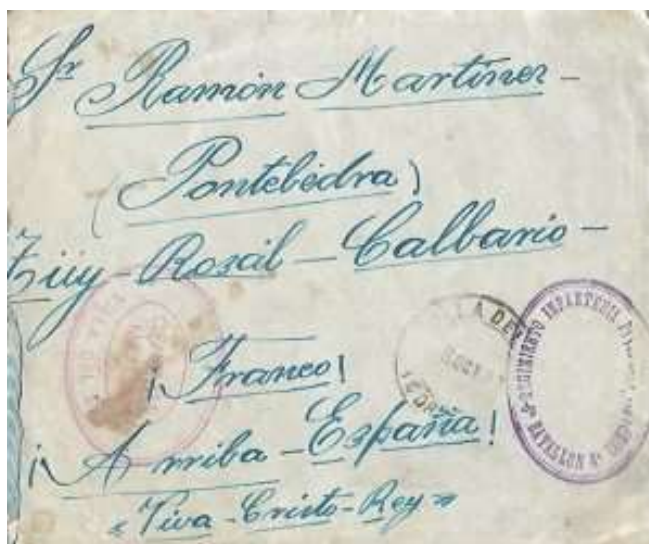 Sr Ramón Martinez -
(Pontebedra)
Túy - Rosal - Calbario -
¡Franco!
¡Arriba - España!
"Viva - Cristo - Rey"
REGIMIENTO INFANTERIA
BATALLON Nº